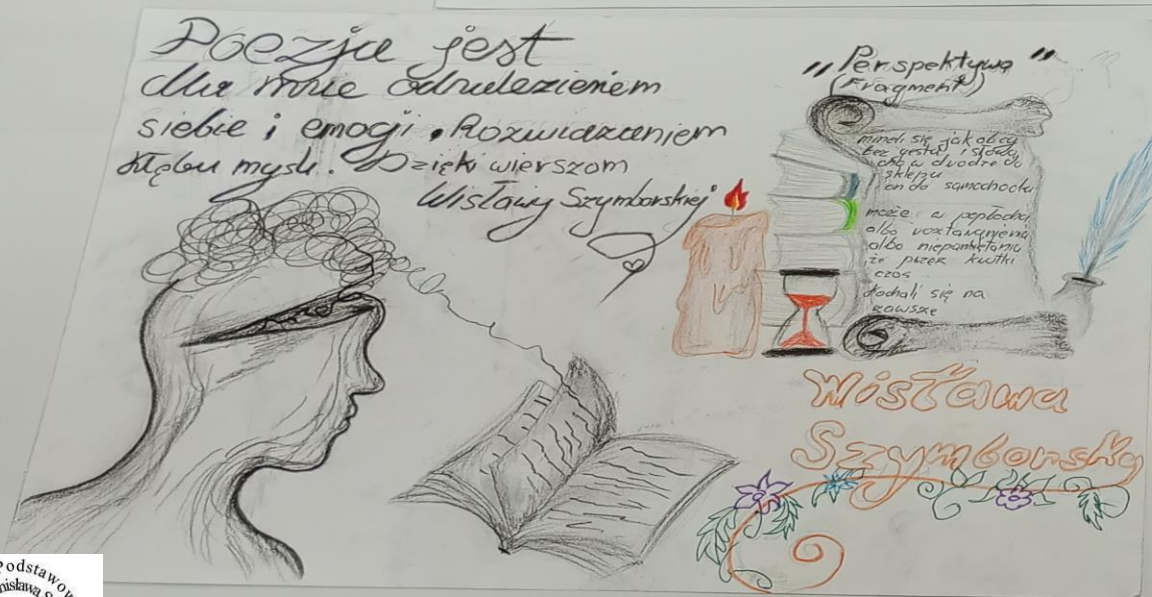 Poezja jest
dla mnie odnalezieniem
siebie i emocji. Rozwiązaniem
kłębu myśli. Dzięki wierszom
Wisławy Szymborskiej
„Perspektywa"
(Fragment)
mineli się jak obcy
bez gestu i słowa
ona w drodze do
sklepu
on do samochodu
może w popłochu
albo roztargnieniu
albo niepamiętaniu
że przez krótki
czas
kochali się na
zawsze
Wisława
Szymborska
Podstawow
nisława S